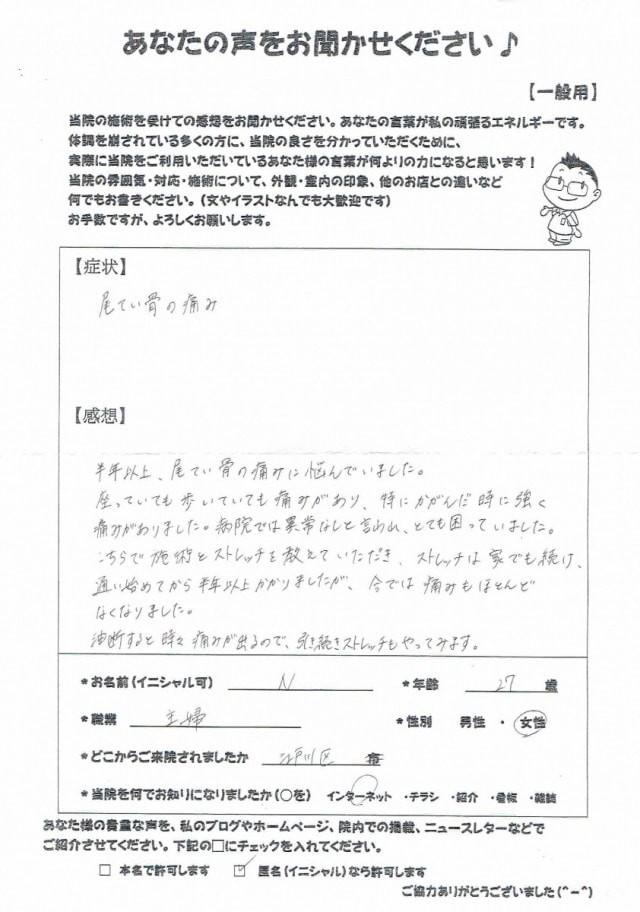 あなたの声をお聞かせください♪
【一般用】
当院の施術を受けての感想をお聞かせください。あなたの言葉が私の頑張るエネルギーです。
体調を崩されている多くの方に、当院の良さを分かっていただくために、
実際に当院をご利用いただいているあなた様の言葉が何よりの力になると思います！
当院の雰囲気・対応・施術について、外観・室内の印象、他のお店との違いなど
何でもお書きください。（文やイラストなんでも大歓迎です）
お手数ですが、よろしくお願いします。
【症状】
尾てい骨の痛み
【感想】
半年以上、尾てい骨の痛みに悩んでいました。
座っていても歩いていても痛みがあり、特にかがんだ時に強く
痛みがありました。病院では異常なしと言われ、とても困っていました。
こちらで施術とストレッチを教えていただき、ストレッチは家でも続け、
通い始めてから半年以上かかりましたが、今では痛みもほとんど
なくなりました。
油断すると時々痛みが出るので、引き続きストレッチもやってみます。
*お名前(イニシャル可) N *年齢 27 歳
*職業 主婦 *性別 男性 ・ 女性
*どこからご来院されましたか 江戸川区 市
*当院を何でお知りになりましたか(○を) インターネット ・チラシ ・紹介 ・看板 ・雑誌
あなた様の貴重な声を、私のブログやホームページ、院内での掲載、ニュースレターなどで
ご紹介させてください。下記の□にチェックを入れてください。
□ 本名で許可します ☑ 匿名(イニシャル)なら許可します
ご協力ありがとうございました(^-^)